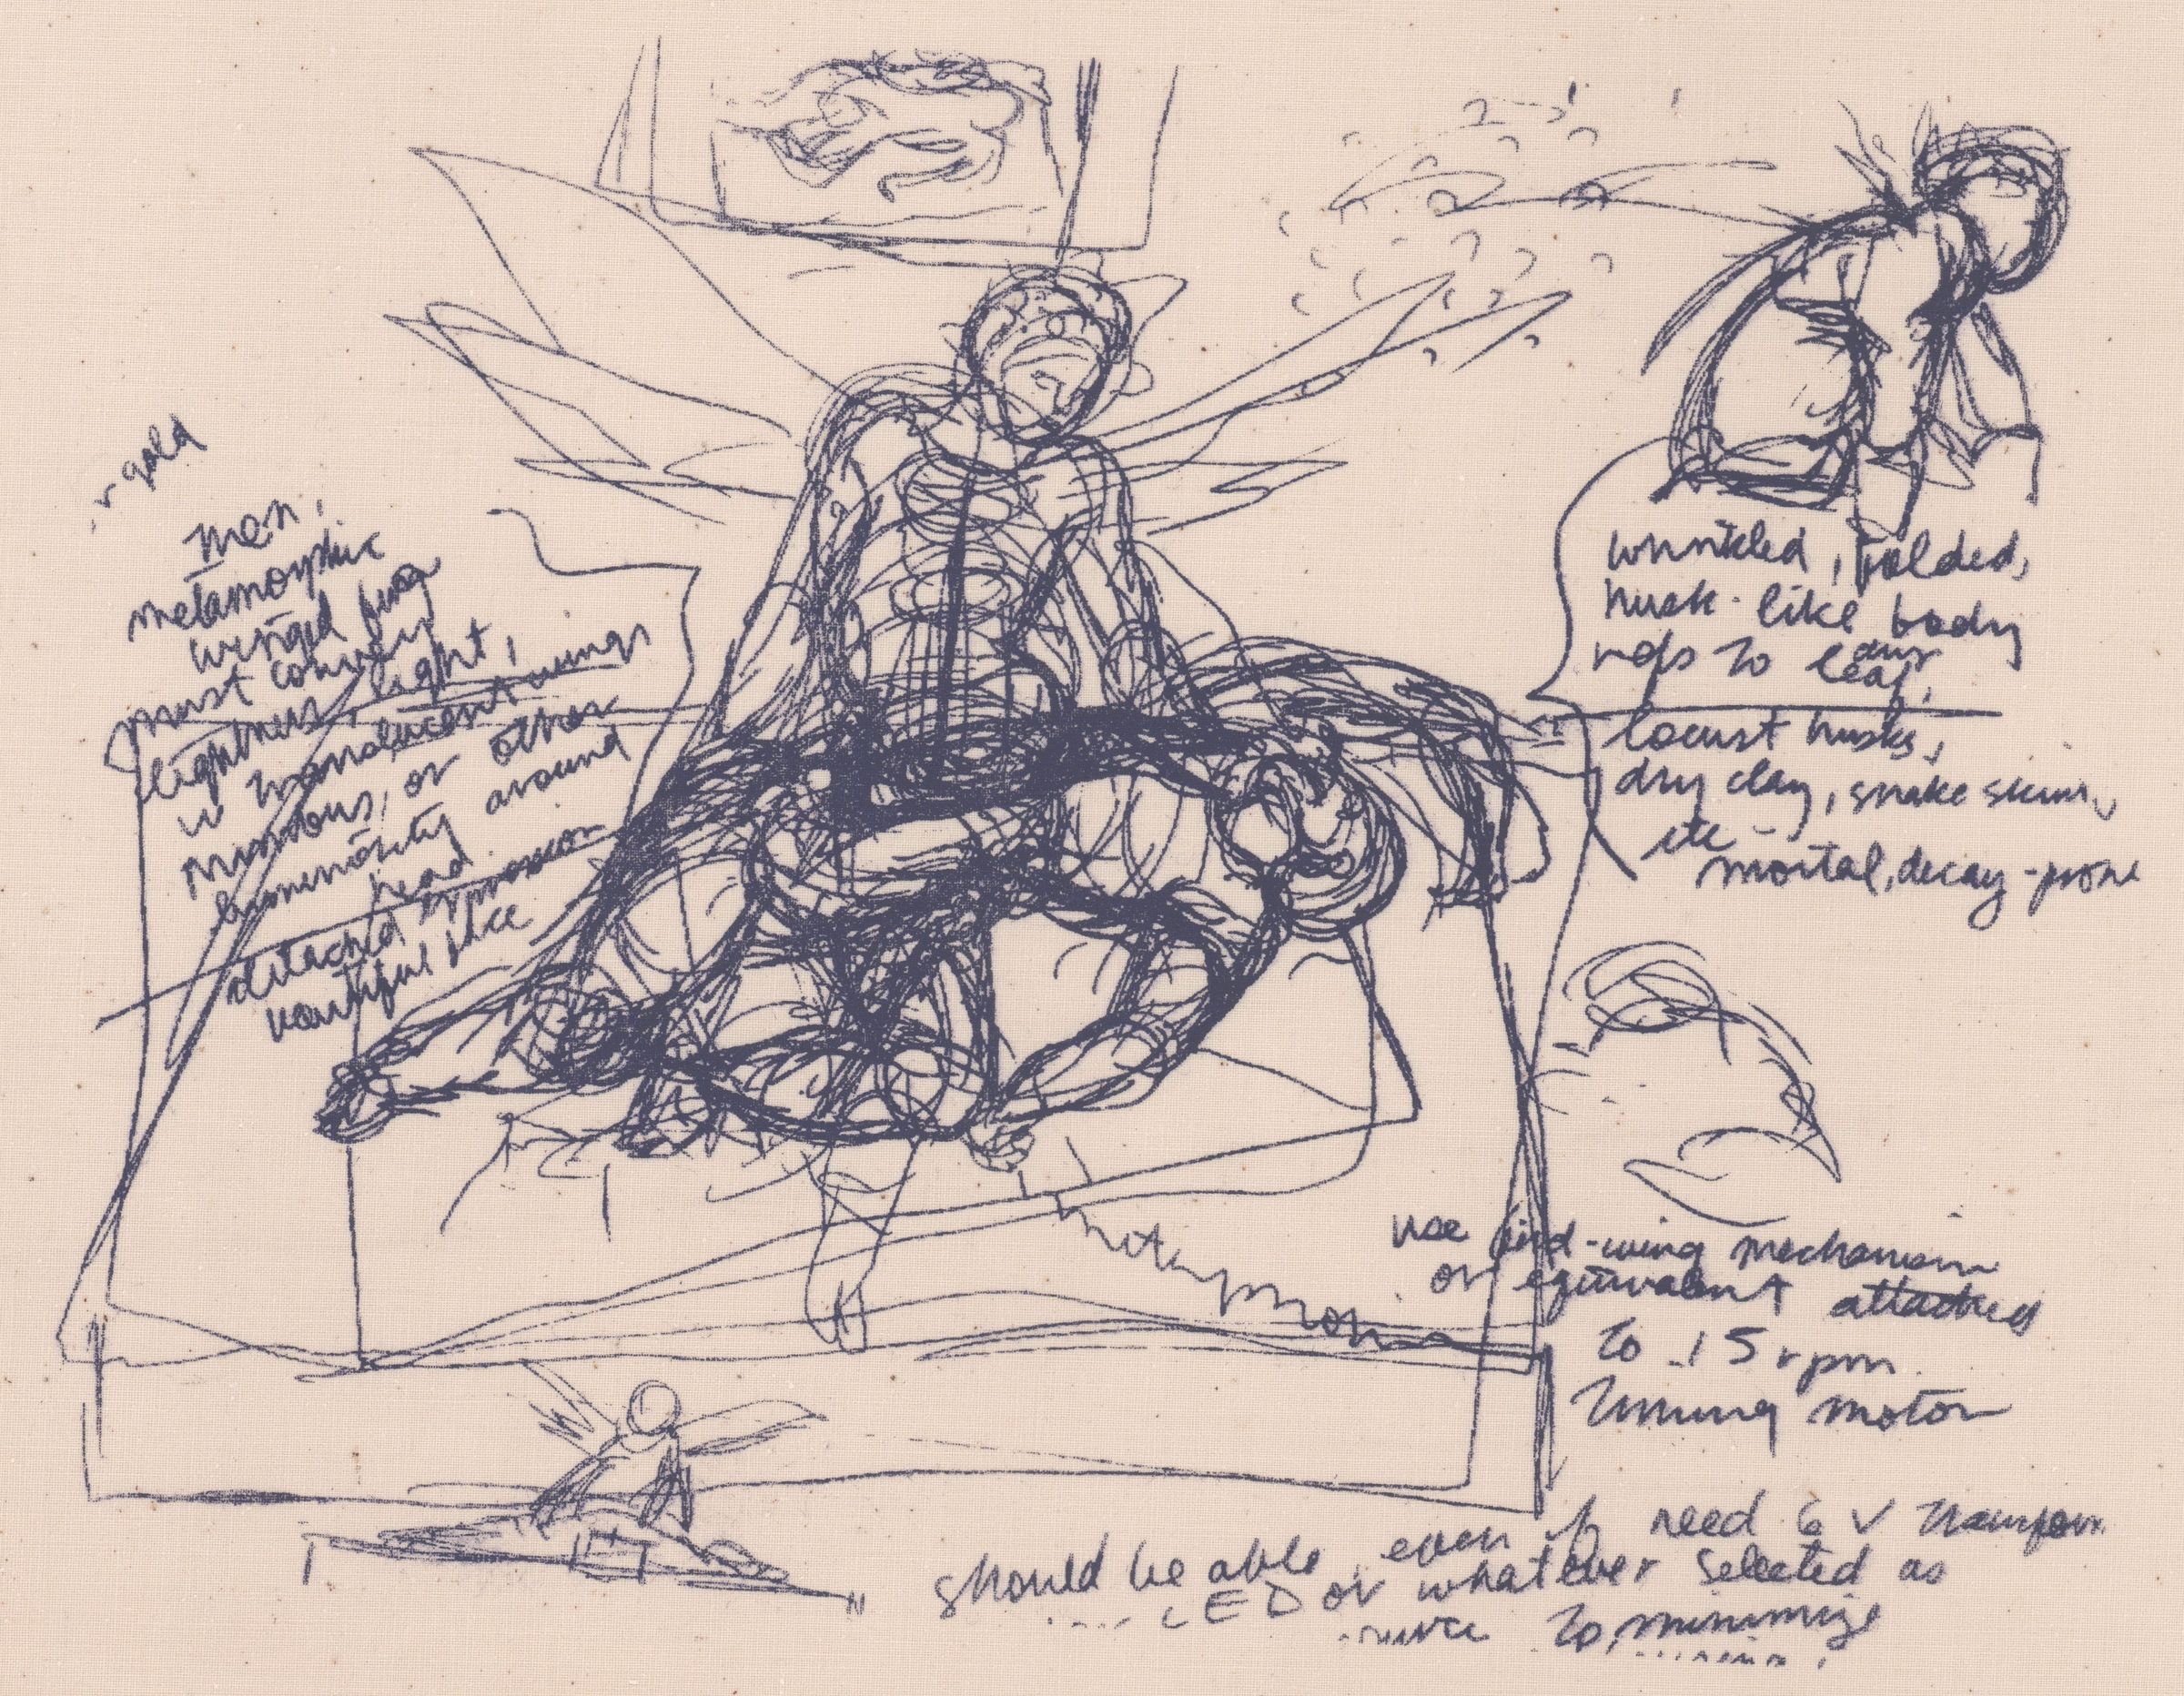 gold
man,
metamorphic
winged
must convey
lightness, light,
w translucent wings
or other
luminosity around
head
detached expression
beautiful face
wrinkled, folded,
husk-like body
refs to leaf,
locust husks,
dry clay, snake skins,
etc
mortal, decay-prone
use bird-wing mechanism
or equivalent attached
to 15 rpm
timing motor
should be able even if need 6 V
LED or whatever selected as
to minimize